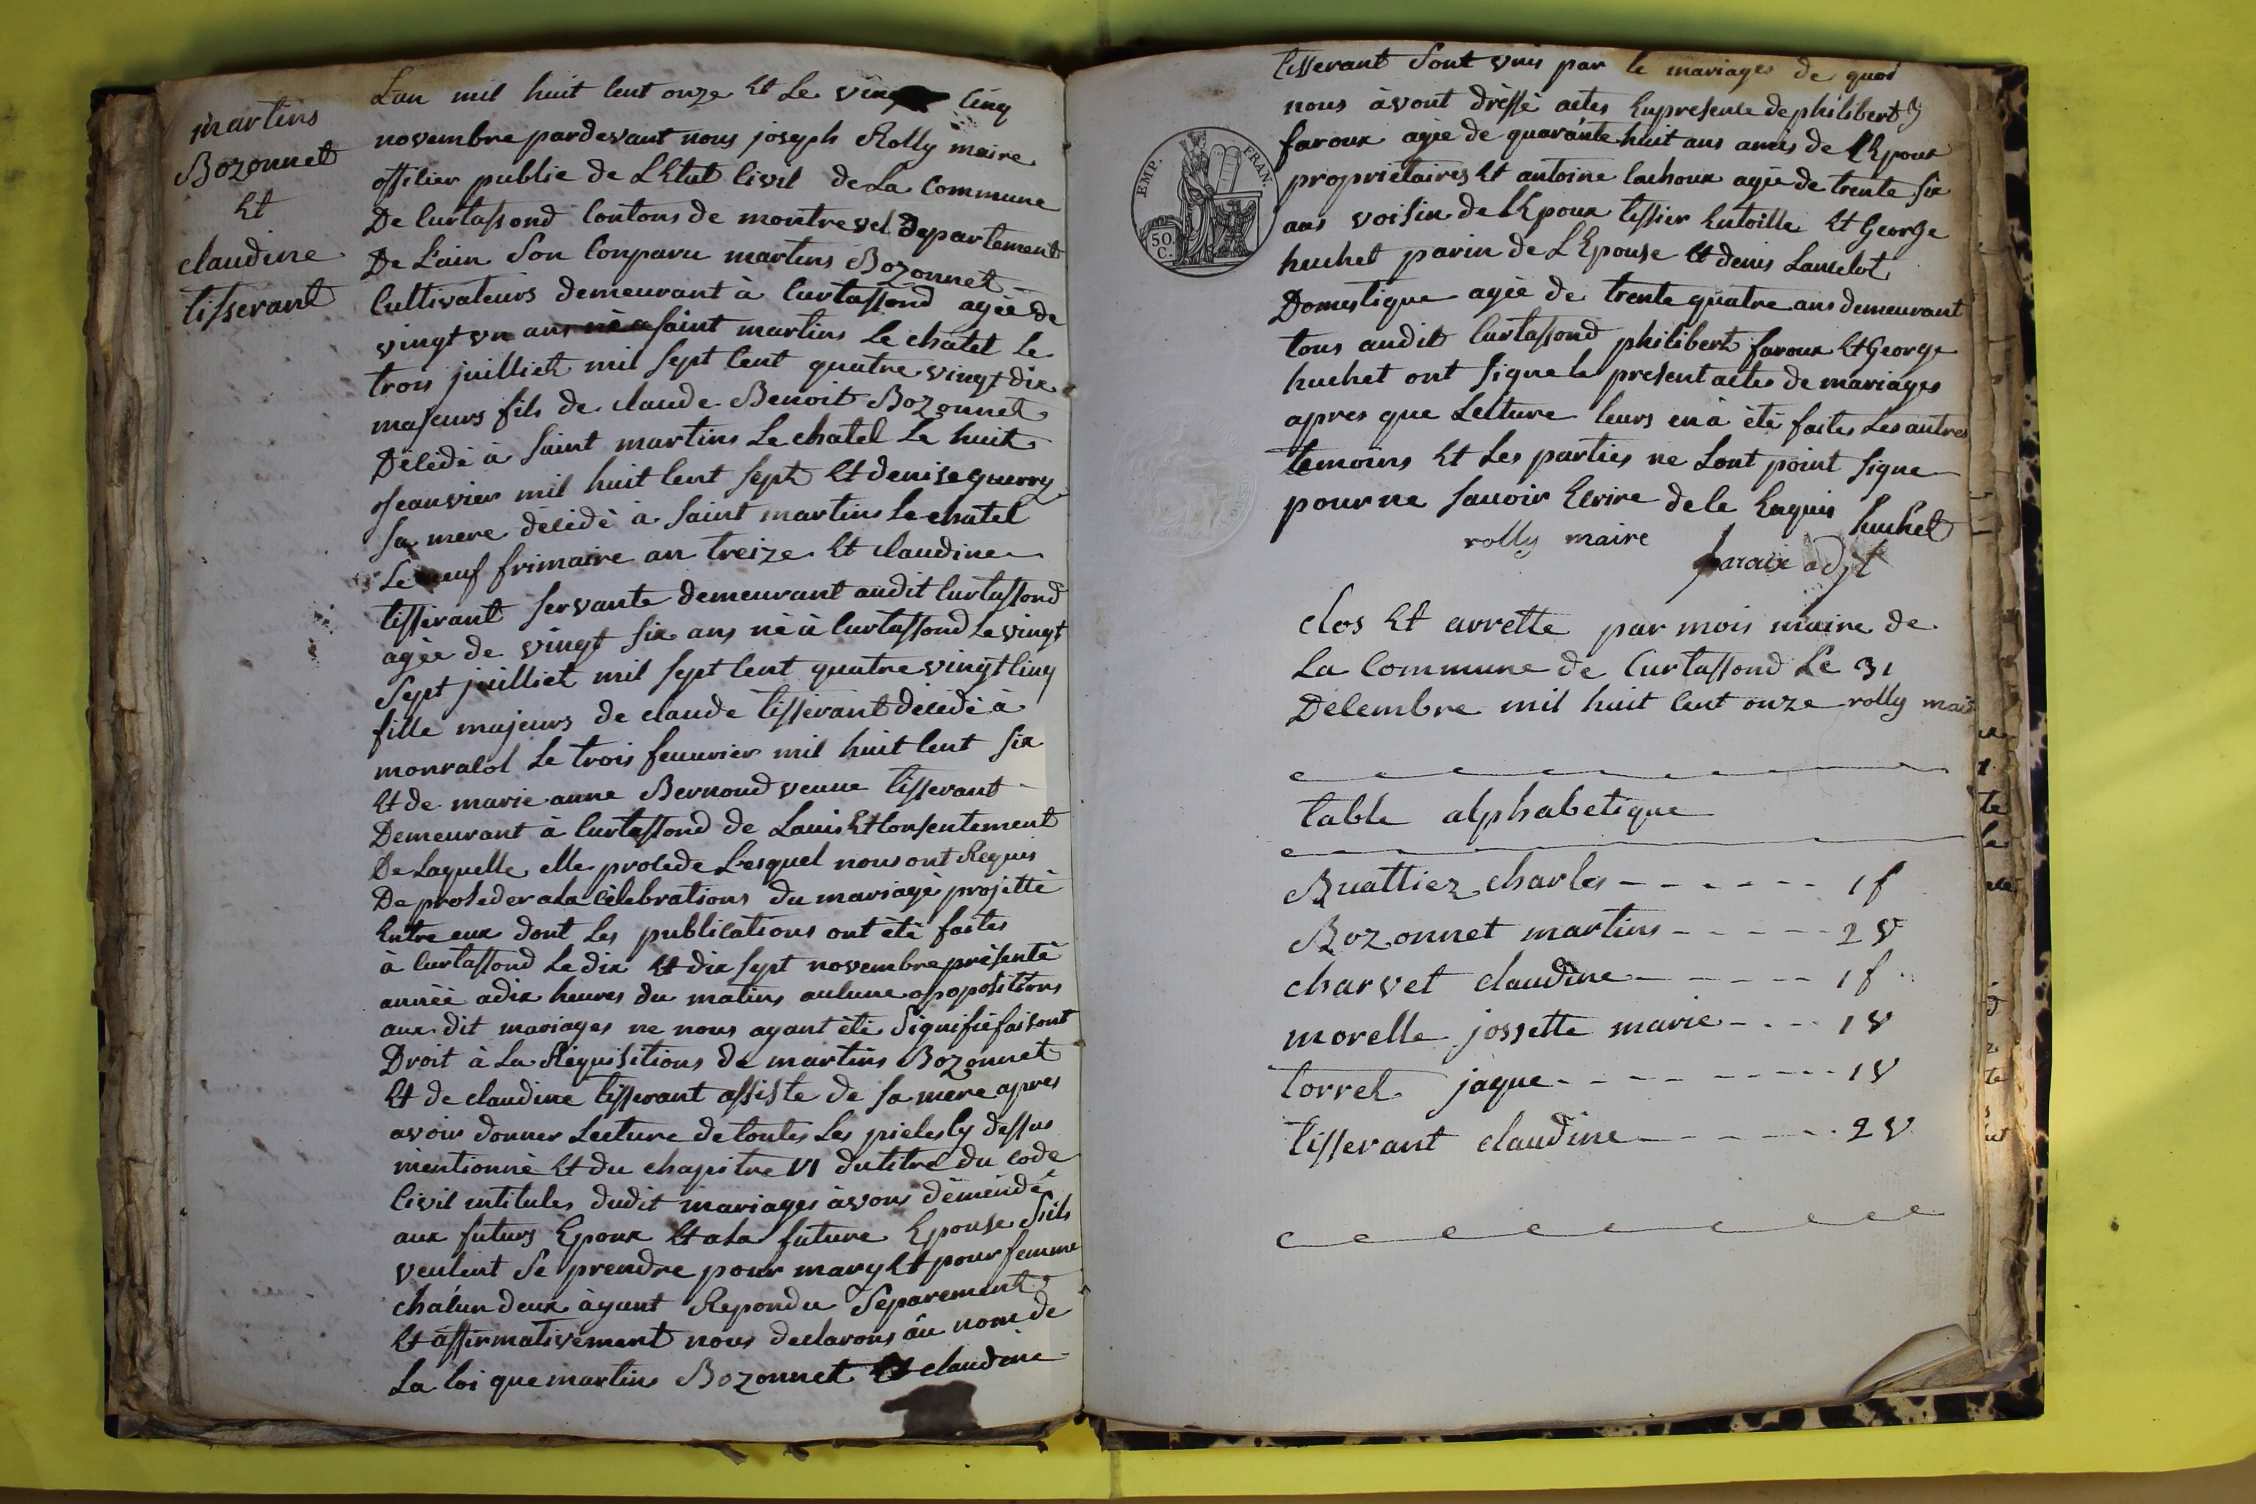 martins
Bozonnet
Et
claudine
tisserant
L'an mil huit Cent onze Et Le vingt Cinq
novembre pardevant nous joseph Rolly maire
officier public de L'Etat Civil de La Commune
De Curtassond Contons de montrevel Departement
De L'ain Son Conparu martins Bozonnet
Cultivateurs demeurant à Curtassond agée de
vingt un ans né a saint martins Le chatel Le
trois juilliet mil sept Cent quatre vingt dix
majeurs fils de claude Benoit Bozonnet
Décédé à saint martins Le chatel Le huit
Jeanvier mil huit Cent sept Et denise guerry
sa mere décédé à saint martins Le chatel
Le neuf frimaire an treize Et claudine
tisserant servante demeurant audit Curtassond
agée de vingt six ans né à Curtassond Le vingt
sept juilliet mil sept Cent quatre vingt Cinq
fille majeurs de claude tisserant décédé à
monracol Le trois feuvrier mil huit Cent six
Et de marie anne Bernoud veuve tisserant
Demeurant à Curtassond de Lavis Et Consentement
De Laquelle elle procede Lesquel nous ont Requis
De proseder ala Célebrations du mariage projetté
Entre eux dont Les publications ont été faites
à Curtassond Le dix Et dix sept novembre présenté
année adix heures du matins aucune opopositions
aux dit mariages ne nous ayant été Signifié faisont
Droit à La Requisitions de martins Bozonnet
Et de claudine tisserant assiste de sa mere apres
avoir donner Lecture de toutes Les pieces Cy dessus
mentionné Et du chapitre VI du titre du code
Civil intitules dudit mariages àvons démendé
aux futurs Epoux Et ala future Epouse S'ils
veulent Se prendre pour mary Et pour femme
chacun deux àyant Repondu Séparement
Et affirmativement nous declarons au nom de
La loi que martins Bozonnet Et claudine
tisserant Sont unis par le mariages de quoi
nous àvont dressé actes Enpresence de philibert
faroux agée de quarante huit ans amis de L'Epoux
propriétaires Et antoine Cachoux agée de trente six
ans voisin de L'Epoux tissier Entoille Et George
huchet parin de L'Epouse Et denis Lancelot
Domestique agée de trente quatre ans demeurant
tous audit Curtassond philibert faroux Et George
huchet ont signe le present actes de mariages
apres que Lecture leurs en à été faites Les autres
temoins Et Les parties ne Lont point signe
pour ne savoir Ecrire de Ce Enquis huchet
rolly maire
faroux adjt
EMP. FRAN.
50. C.
clos Et arrette par mois maire de
La Commune de Curtassond Le 31
Décembre mil huit Cent onze rolly maire
table alphabetique
Buattiez charles 1 f
Bozonnet martins 2 V
charvet claudine 1 f
morelle jossette marie 1 V
torret jaque 1 V
tisserant claudine 2 V